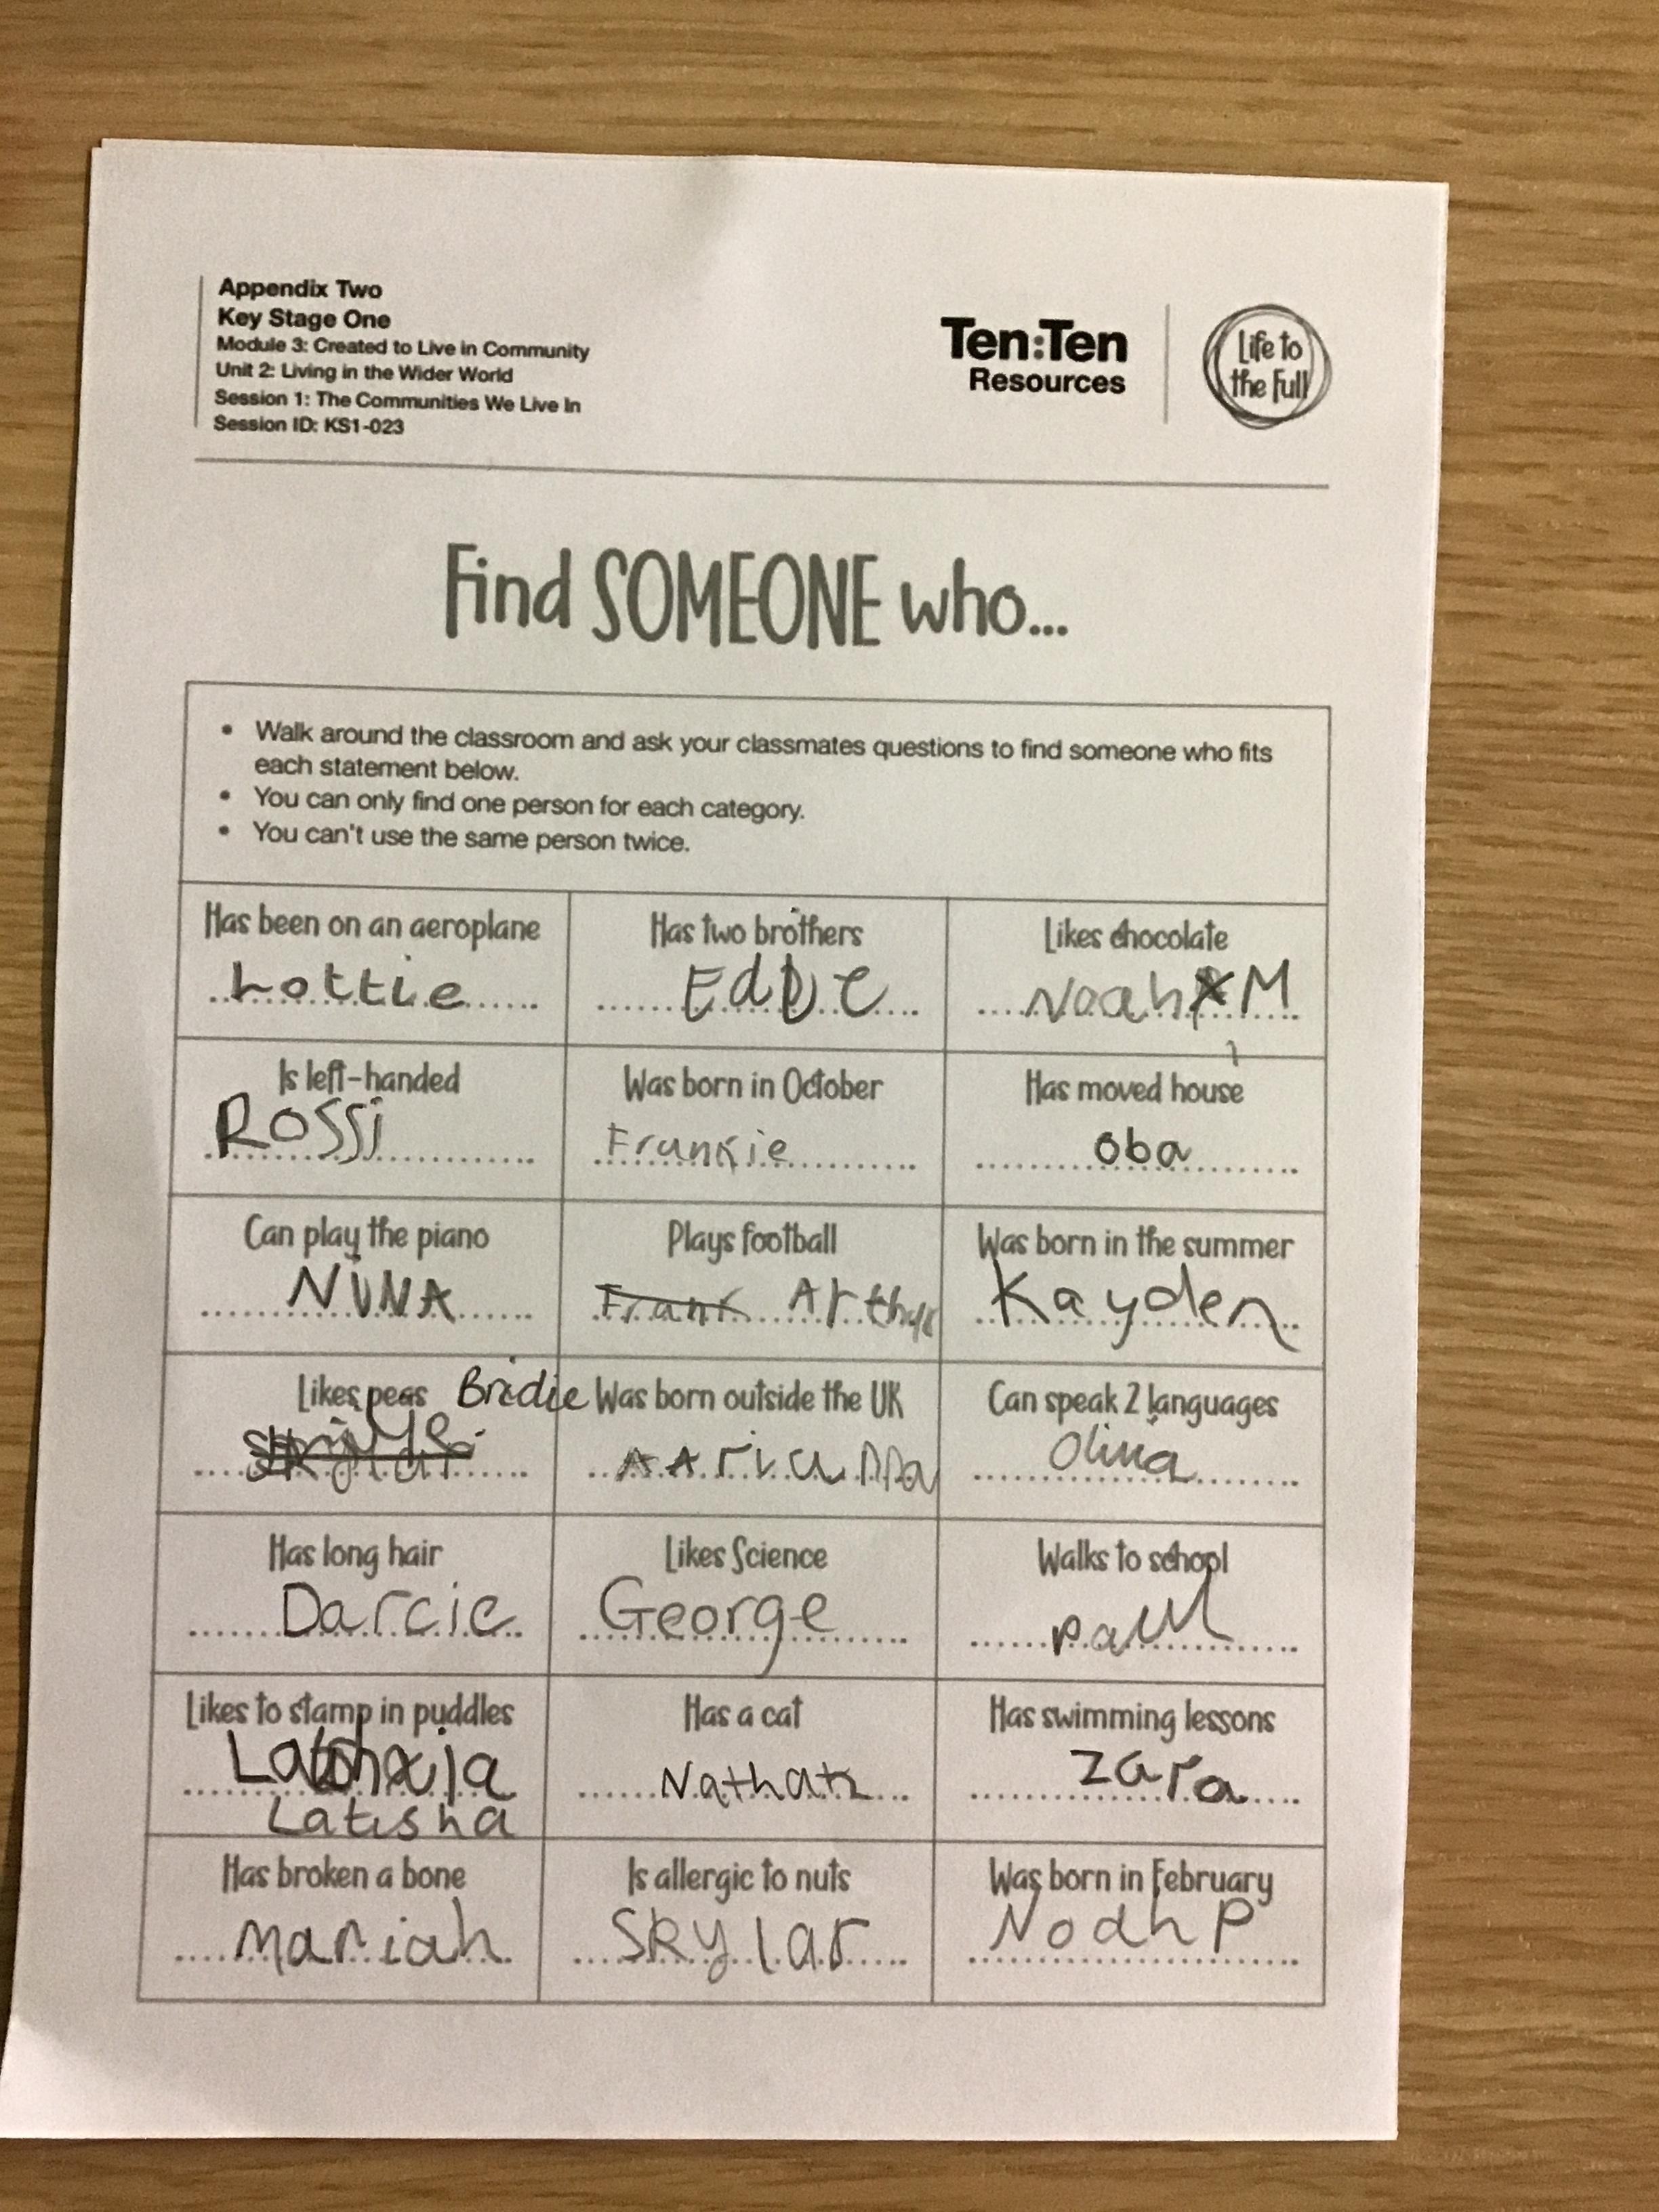 Appendix Two
Key Stage One
Module 3: Created to Live in Community
Unit 2: Living in the Wider World
Session 1: The Communities We Live In
Session ID: KS1-023
Ten:Ten
Resources
Life to
the Full
Find SOMEONE who...
• Walk around the classroom and ask your classmates questions to find someone who fits
each statement below.
• You can only find one person for each category.
• You can't use the same person twice.
Has been on an aeroplane
Lottie
Has two brothers
Likes chocolate
Noah M
Is left-handed
Rossi
Was born in October
Frankie
Has moved house
Oba
Can play the piano
NINA
Plays football
Frank Arthur
Was born in the summer
Kayden
Likes peas Bridie
Skylar
Was born outside the UK
AArianna
Can speak 2 languages
Olivia
Has long hair
Darcie
Likes Science
George
Walks to school
paul
Likes to stamp in puddles
Latisha
Has a cat
Nathan
Has swimming lessons
Zara
Has broken a bone
mariah
Is allergic to nuts
Skylar
Was born in February
Noah P